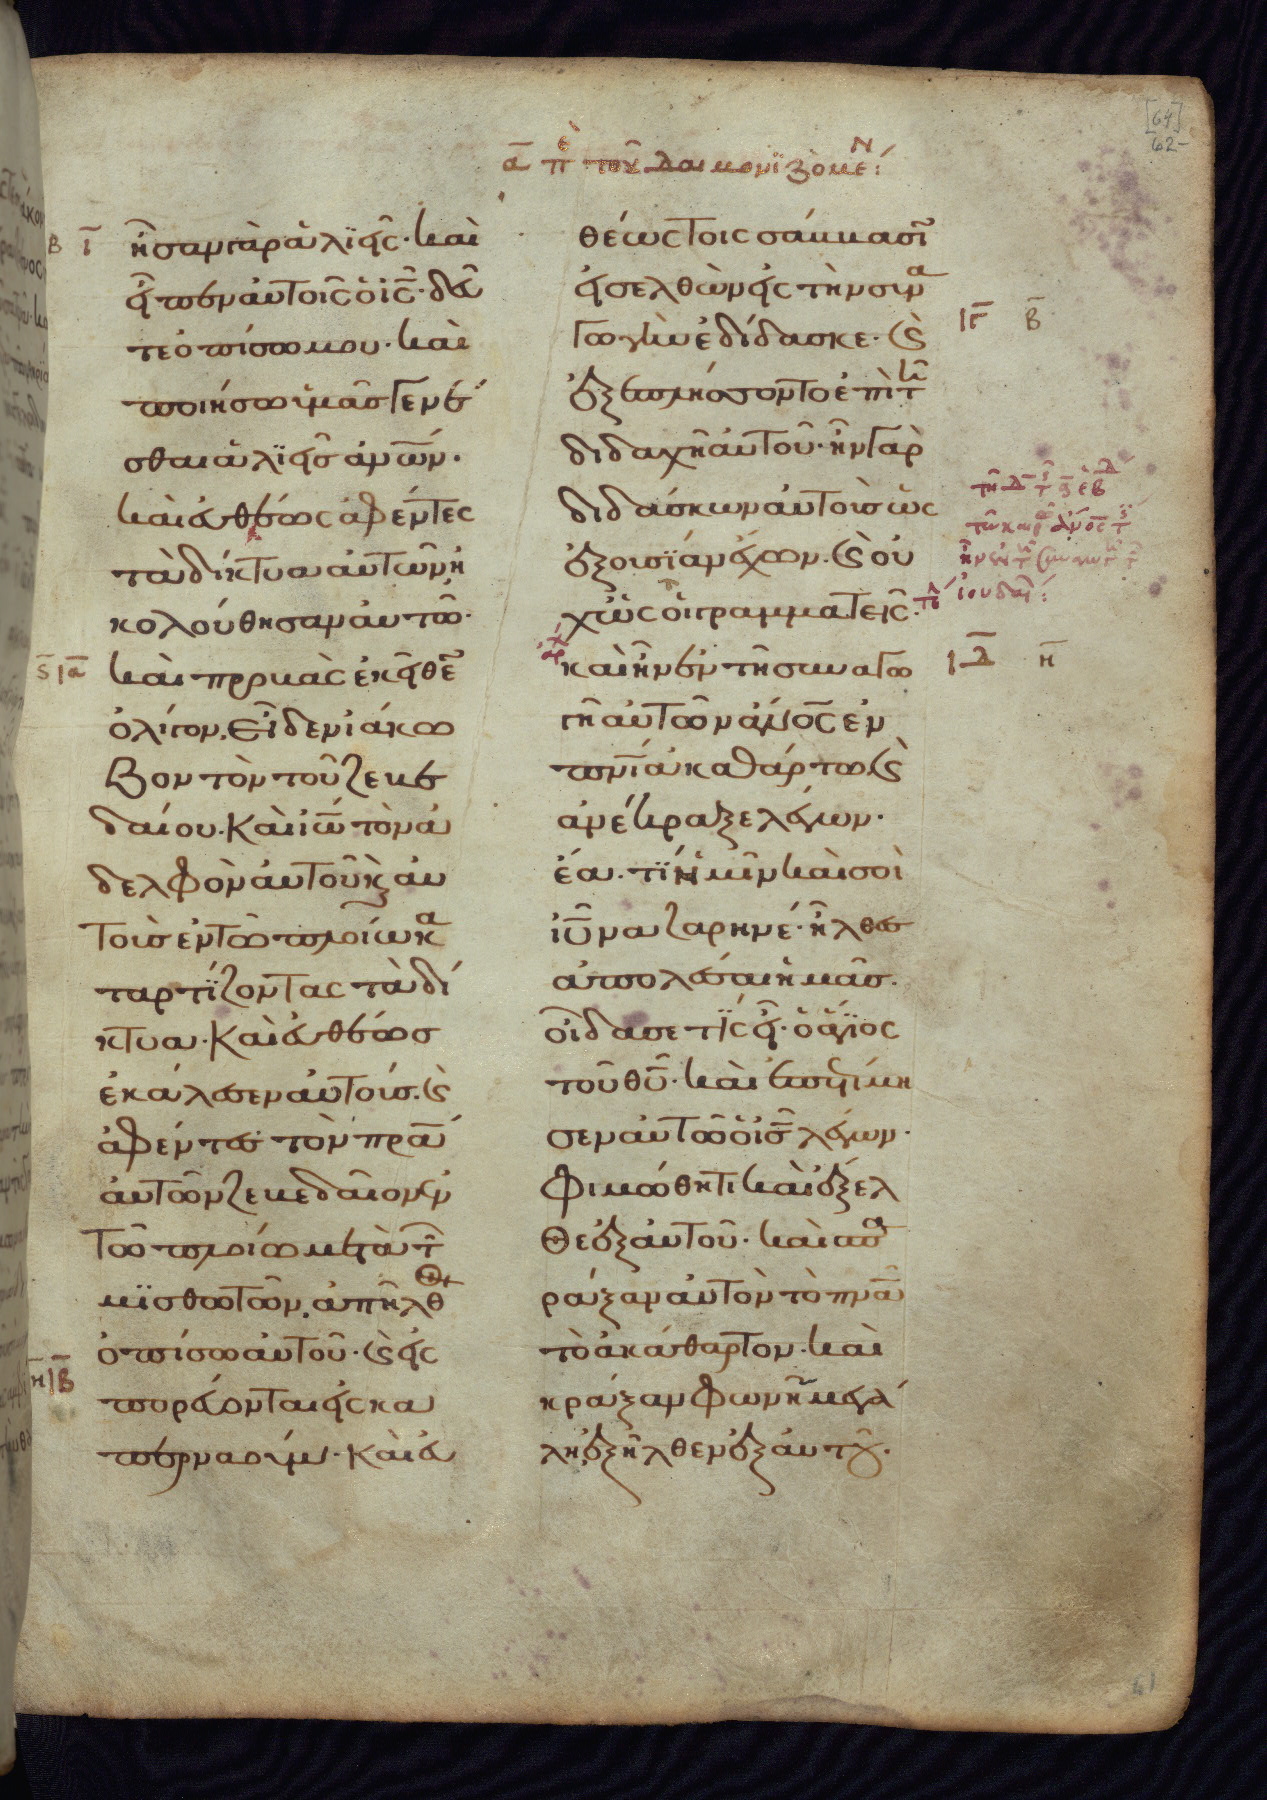 ᾱ π̄ὲ τοῦ δαιμονϊζομέν:
ῑ ἦσαν γὰρ ἁλϊεῖς· καὶ
εἶπεν αὐτοῖς ὁ ις̄· δεῦ
τε ὀπίσω μου· καὶ
ποιήσω ὑμᾶς γενέ
σθαι ἁλϊεῖς ἀν̄ων·
καὶ εὐθέως ἀφέντες
τὰ δίκτυα αὐτῶν ἠ
κολούθησαν αὐτῶ·
καὶ προβὰς ἐκεῖθε
ὀλίγον. Εἶδεν ἰάκω
βον τὸν τοῦ ζεβε
δαίου· Καὶ ἰω̄ τὸν ἀ
δελφὸν αὐτοῦ κ̀ αὐ
τοὺς ἐν τῶ πλοίω κα
ταρτΐζοντας τὰ δί
κτυα· Καὶ εὐθέως
ἐκάλεσεν αὐτούς. κ̀
ἀφέντες τὸν πρ̄α
αὐτῶν ζεβεδαῖον ἐν
τῶ πλοίω μετὰ τ̄
μϊσθωτῶν, ἀπῆλθον
ὀπίσω αὐτοῦ· κ̀ εἰσ
πορεύονται εἰς κα
περναούμ· Καὶ εὐ
θέως τοῖς σάββασϊ
εἰσελθὼν εἰς τὴν συνα
γωγὴν ἐδίδασκε· κ̀
ἐξεπλήσσοντο ἐπὶ τ
διδαχῆ αὐτοῦ· ἦν γὰρ
διδάσκων αὐτοὺς ὡς
ἐξουσίαν ἔχων. κ̀ οὐ
χ ὡς οἱ γραμματεῖς·
καὶ ἦν ἐν τῆ συναγω
γῆ αὐτῶν ἀν̄ος ἐν
πν̄ι ἀκαθάρτω κ̀
ἀνέκραξε λέγων·
ἔα· τΐ ἡμῖν καὶ σοὶ
ιῡ ναζαρηνέ· ἦλθες
ἀπολέσαι ἡμᾶς·
οἶδα σε τΐς εἶ· ὁ ἅγϊος
τοῦ θῡ· καὶ ἐπετίμη
σεν αὐτῶ ὁ ις̄ λέγων·
Φιμώθητι καὶ ἔξελ
θε ἐξ αὐτοῦ· καὶ σπα
ράξαν αὐτὸν τὸ πν̄α
τὸ ἀκάθαρτον· καὶ
κράξαν φωνῆ μεγά
λη ἐξῆλθεν ἐξ αὐτοῦ.
ιγ̄ β̄
ιδ̄ η̄
ς̄ ιᾱ
η̄ ιβ̄
[64]
62